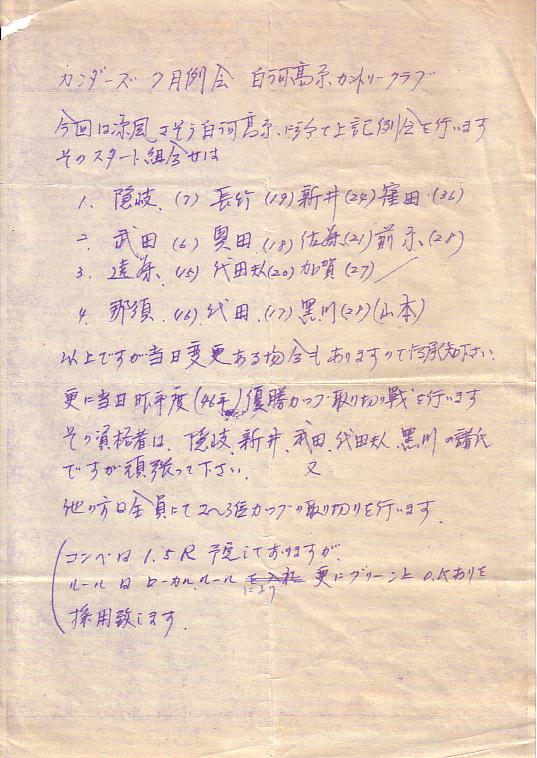 カンダーズ 7月例会 白河高原カントリークラブ
今回は涼風さそう白河高原に於て上記例会を行います
そのスタート組合せは
1. 隠岐 (7) 長竹 (19) 新井 (24) 窪田 (36)
2. 武田 (6) 奥田 (18) 佐藤 (21) 前原 (28)
3. 遠藤 (15) 代田夫人 (20) 加賀 (27)
4. 那須 (16) 代田 (17) 黒川 (28) (山本)
以上ですが当日変更ある場合もありますので御承知下さい
更に当日昨年度(46年)優勝カップ取り切り戦を行います
その資格者は、隠岐、新井、武田、代田夫人、黒川の諸氏
ですが頑張って下さい 又
他の方は全員にて2〜3位カップの取切りを行います
コンペは 1.5R 予定しておりますが
ルールはローカルルールにより 更にグリーン上 O.Kありを
採用致します